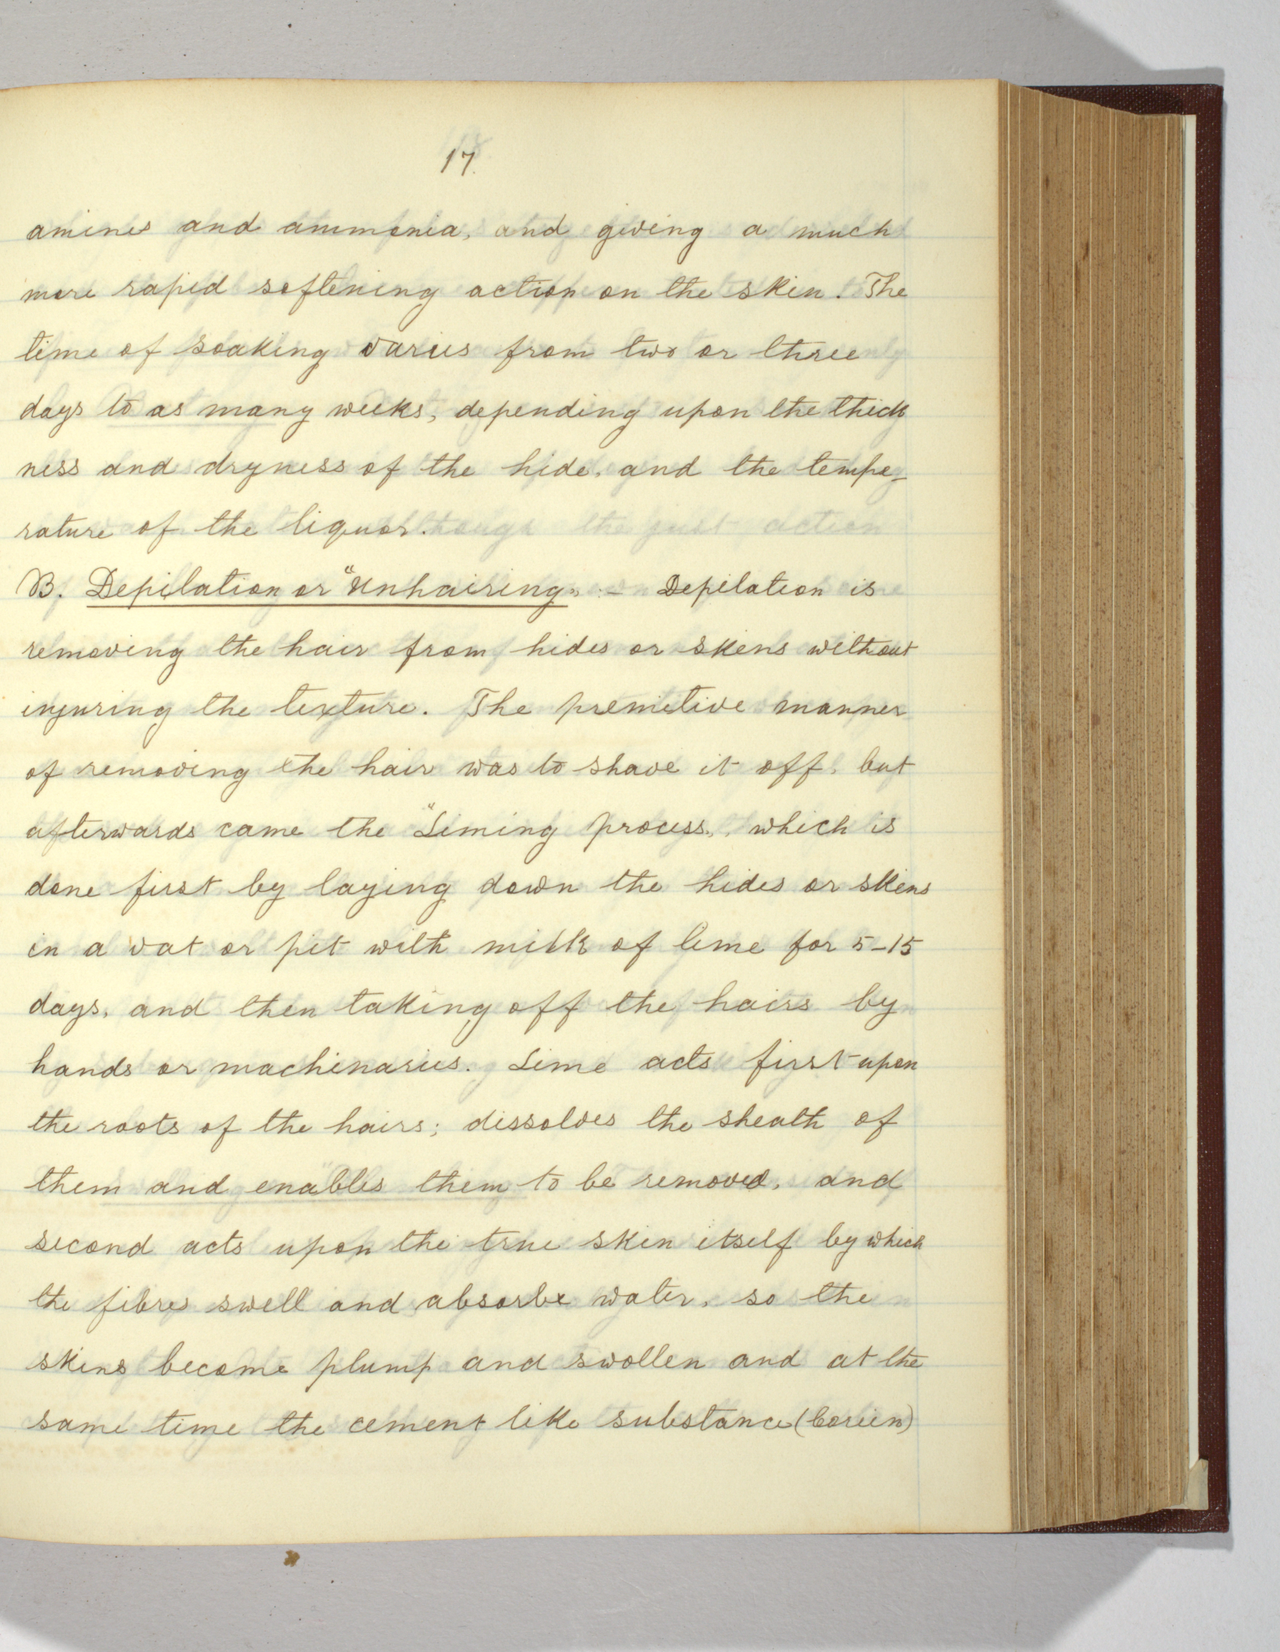 17
amines and ammonia, and giving a much
more rapid softening action on the skin. The
time of soaking varies from two or three
days to as many weeks, depending upon the thick
ness and dryness of the hide, and the tempe-
rature of the liquor.
B. Depilation or "Unhairing„ :- Depilation is
removing the hair from hides or skins without
injuring the texture. The primitive manner
of removing the hair was to shave it off, but
afterwards came the "Liming process„, which is
done first by laying down the hides or skins
in a vat or pit with milk of lime for 5-15
days, and then taking off the hairs by
hands or machinaries. Lime acts first upon
the roots of the hairs; dissolves the sheath of
them and enables them to be removed, and
second acts upon the true skin itself by which
the fibres swell and absorbe water, so the
skins become plump and swollen and at the
same time the cement like substance (Coriin)